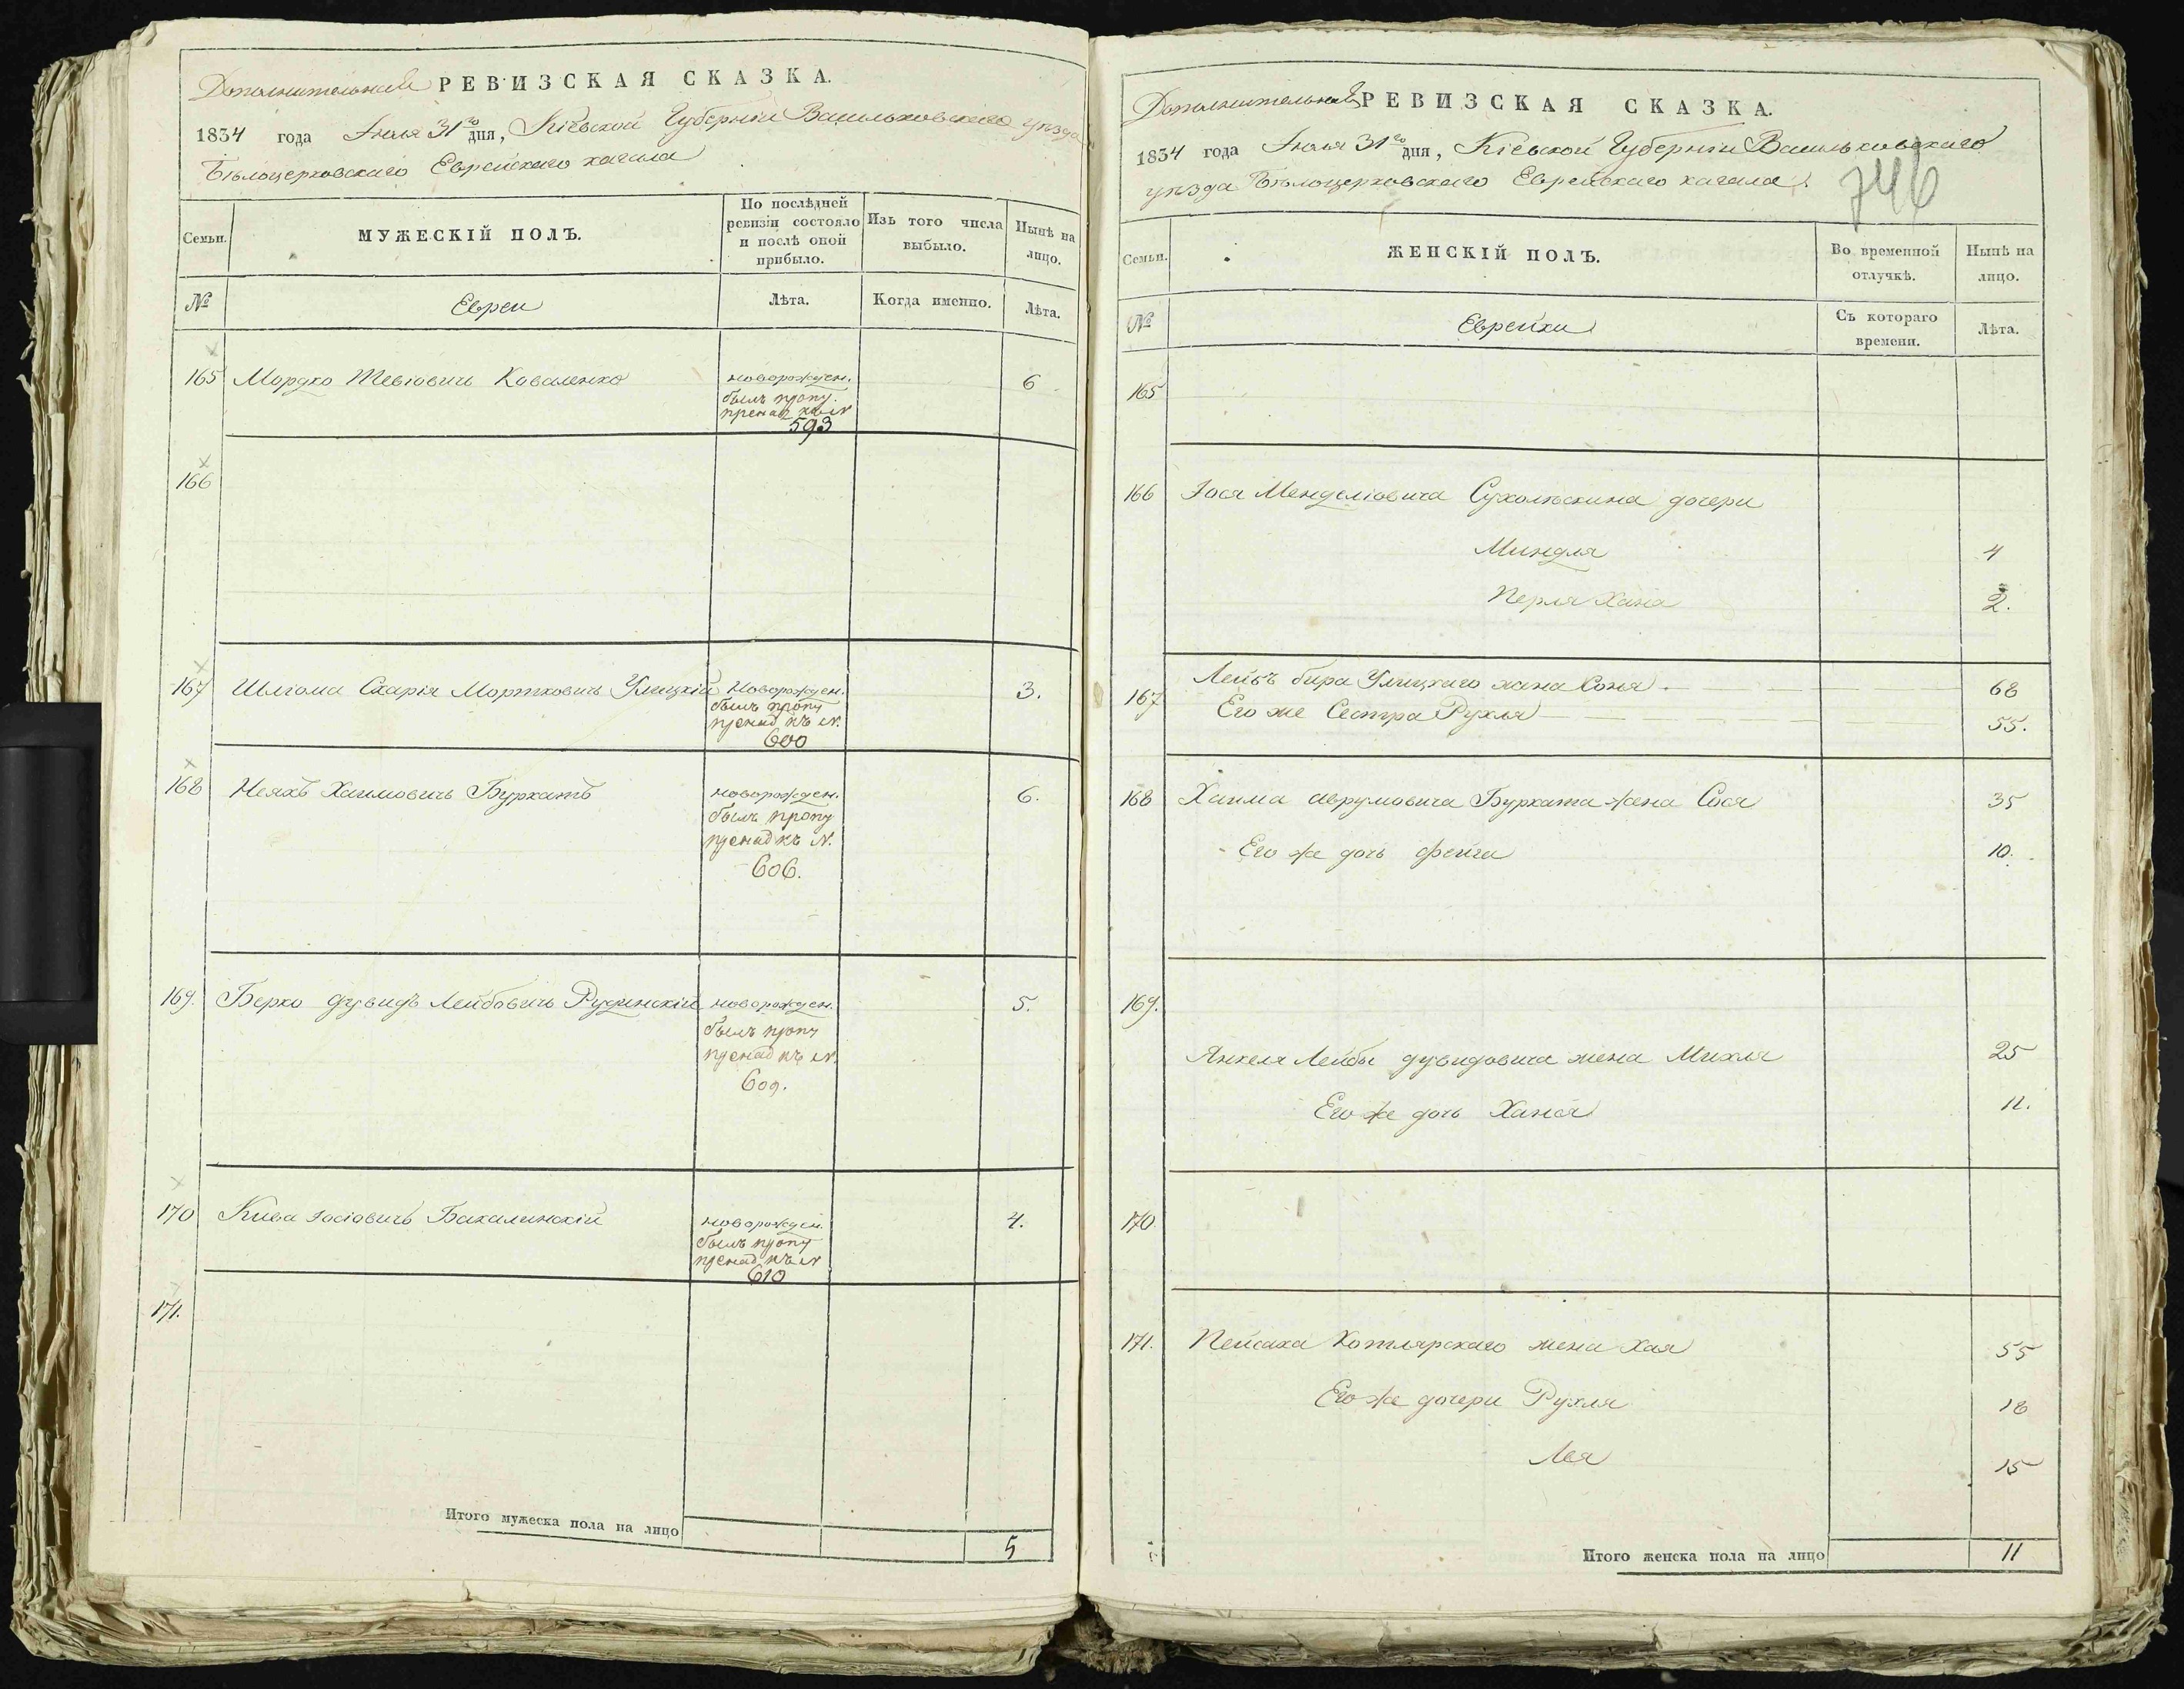 Дополнительная РЕВИЗСКАЯ СКАЗКА.
1834 года Июля 31го дня, Кіевской Губерніи Васильковскаго уѣзда
Бѣлоцерковскаго Еврейскаго кагала
Семьи.
МУЖЕСКІЙ ПОЛЪ.
По послѣдней
ревизіи состояло
и послѣ оной
прибыло.
Изъ того числа
выбыло.
Нынѣ на
лицо.
№
Евреи
Лѣта.
Когда именно.
Лѣта.
165 Мордко Тевіовичъ Коваленко новорожден. 6
былъ пропу.
593
166
167 Шліома Схарія Мортковичъ Улицкій новорожден. 3.
былъ пропу
пренад къ №.
600
168 Неяхъ Хаимовичъ Буркатъ новорожден. 6.
былъ пропу
пренад къ №.
606.
169. Берко Дувидъ Лейбовичъ Рудинскій новорожден. 5.
былъ пропу
пренад къ №.
609.
170 Кива Іосіовичъ Бакалинскій новорожден. 4.
былъ пропу
пренад къ №
610
171.
Итого мужеска пола на лицо 5
Дополнительная РЕВИЗСКАЯ СКАЗКА.
1834 года Июля 31го дня, Кіевской Губерніи Васильковскаго
уѣзда Бѣлоцерковскаго Еврейскаго кагала.
746
Семьи.
ЖЕНСКІЙ ПОЛЪ.
Во временной
отлучкѣ.
Нынѣ на
лицо.
№
Еврейки
Съ котораго
времени.
Лѣта.
165
166 Іося Менделіовича Сухолѣскина дочери
Миндля 4
Перля Хана 2.
167 Лейбъ бира Улицкаго жена Соня 68
Его же Сестра Рухля 55.
168 Хаима Аврумовича Бурката жена Сося 35
Его же дочь Фейга 10.
169.
Янкеля Лейбы Дувидовича жена Михля 25
Его же дочь Хана 11.
170
171. Пейсаха Котлярскаго жена Хая 55
Его же дочери Рухля 18
Лея 15
Итого женска пола на лицо 11